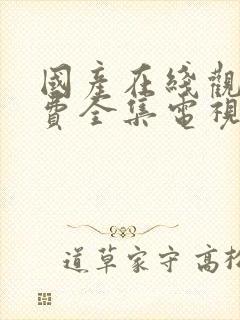 國産在綫觀
費全集電視
道草家守高松